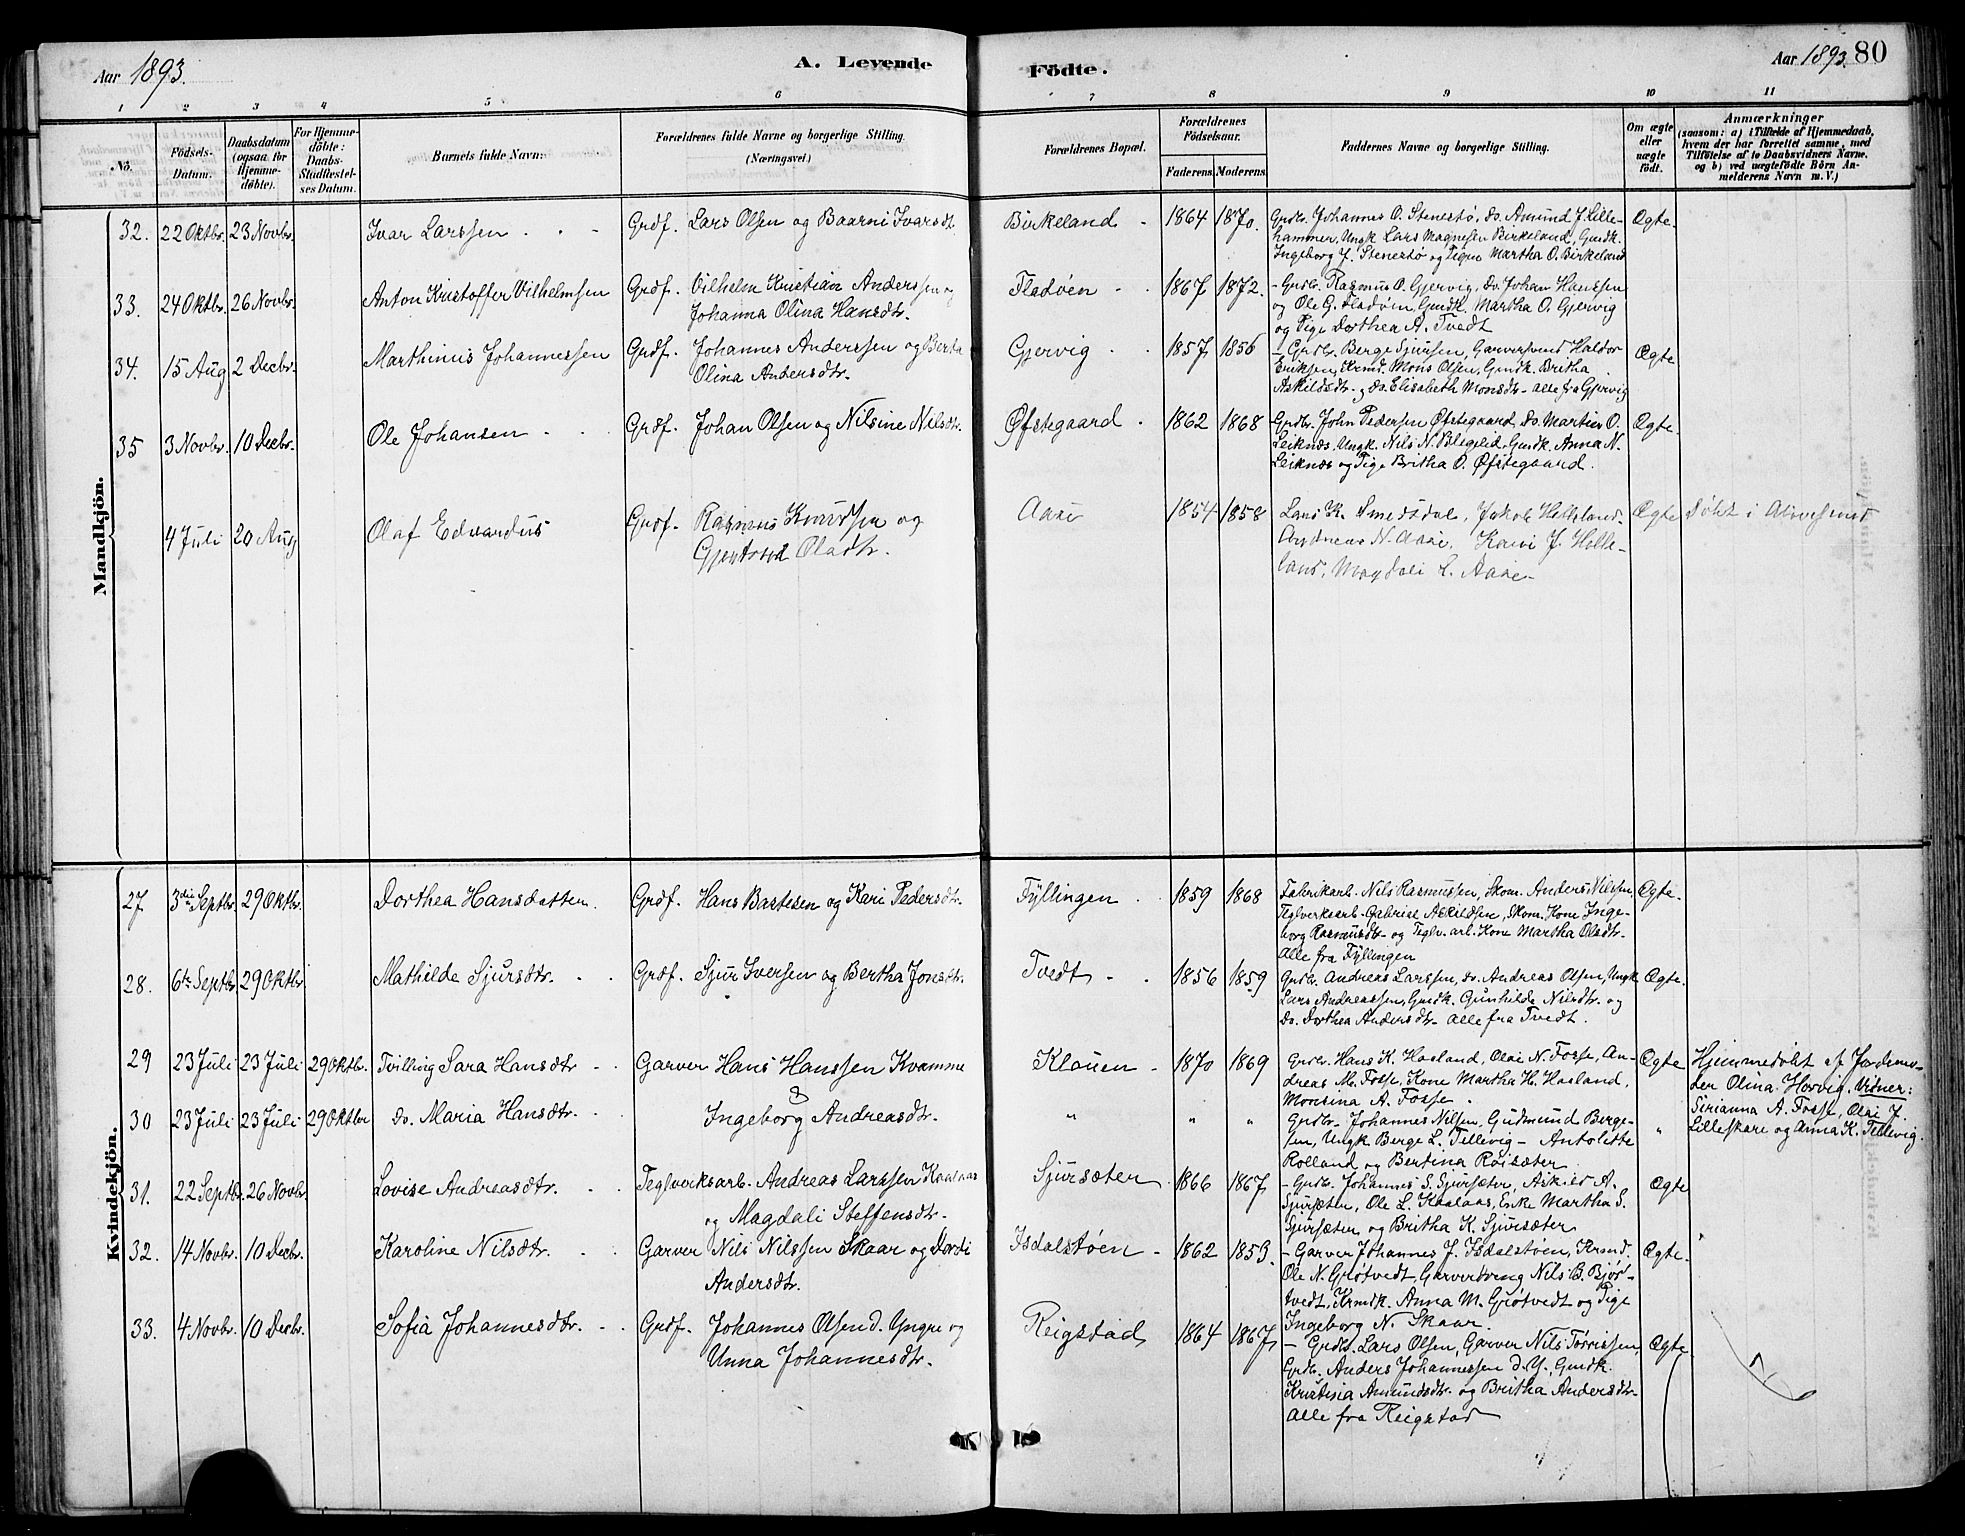 Aar 1893.
A. Levende
Födte.
Aar 1893. 80
1 2 3 4 5 6 7 8 9 10 11
No.
Födsels-Datum.
Daabsdatum (ogsaa for Hjemmedöbte).
For Hjemmedöbte: Daabs-Stadfæstelses Datum.
Barnets fulde Navn.
Forældrenes fulde Navne og borgerlige Stilling. (Næringsvei)
Forældrenes Bopæl.
Forældrenes Födselsaar.
Faderens. Moderens.
Faddernes Navne og borgerlige Stilling.
Om ægte eller uægte födt.
Anmærkninger
(saasom: a) i Tilfælde af Hjemmedaab,
hvem der har forrettet samme, med
Tilföielse af to Daabsvidners Navne,
og b) ved uægtefödte Börn An-
melderens Navn m. V.)
Mandkjön.
32. 22 Oktbr. 23 Novbr. Ivar Larssen Grdf. Lars Olsen og Baarni Ivarsdt. Birkeland 1864 1870. Grdbr. Johannes O. Stenestø, do. Amund J. Lille-
hammer, Ungk. Lars Magnesen Birkeland, Gmdk.
Ingeborg J. Stenestø og Pigen Martha O. Birkeland
Ægte.
33. 24 Oktbr. 26 Novbr. Anton Kristoffer Vilhelmsen Grdf. Vilhelm Kristian Anderssen og
Johanna Olina Hansdtr.
Fladøen 1867 1872. Grdbr. Rasmus O. Gjervig, do. Johan Hanssen
og Ole G. Fladøen, Gmdk. Martha O. Gjervig
og Pige Dorthea A. Tvedt
34. 15 Aug 2 Decbr. Marthinus Johannessen Grdf. Johannes Anderssen og Berta
Olina Andersdtr.
Gjervig 1857 1856 Grdbr. Berge Sjursen, Garversvend Haldor
Eriksen, Krmd. Mons Olsen, Gmdk. Britha
Askildsdtr. og do. Elisabeth Monsdtr. alle fra Gjervig
Ægte
35 3 Novbr. 10 Decbr. Ole Johansen Grdf. Johan Olsen og Nilsine Nilsdtr. Øfstegaard 1862 1868 Grdbr. John Pedersen Øfstegaard, do. Martin O.
Leiknæs, Ungk. Nils N. Gmdk. Anna N.
Leiknæs og Pige Britha O. Øfstegaard.
Ægte.
4 Juli 20 Aug Olaf Edvardus Grdf. Rasmus Knudsen og
Gjertrud Olsdtr.
Aase 1854 1858 Lars K. Smedsdal, Jakob Helleland,
Andreas N. Aase, Kari J. Helle-
land, Magdali L. Aase
Ægte Døbt i
Kvindekjön.
27 3die Septbr. 29 Oktbr. Dorthea Hansdatter. Grdf. Hans Bertesen og Kari Pedersdtr. Fyllingen 1859 1868 Fabrikarb. Nils Rasmussen, Skom. Anders Nilssen,
Teglverksarb. Gabriel Askildsen, Skom. Kone Inge-
borg Rasmusdtr. og Teglv. arb. Kone Martha Olsdtr.
Alle fra Fyllingen
Ægte.
28. 6te Septbr. 29 Oktbr. Mathilde Sjursdtr. Grdf. Sjur Iversen og Bertha Jonsdtr. Tvedt 1856 1859 Grdbr. Andreas Larssen, do. Andreas Olsen, Ungk.
Lars Andreassen, Gmdk. Gunhilde Nilsdtr. og
do. Dorthea Andersdtr. alle fra Tvedt.
Ægte.
29 23 Juli 23 Juli 29 Oktbr. Tvilling Sara Hansdtr. Garver Hans Hanssen Kvamme
&
Klauen 1870 1869 Grdbr. Hans K. Hasland, Olai N. Fosse, An-
dreas M. Fosse, Kone Martha H. Hasland,
Monsina A. Fosse.
Ægte Hjemmedøbt af Jordemo-
der Olina Hervig. Vidner:
Sirianna A. Fosse, Olai J.
Lilleskare og Anna K. Tellevig.
30 23 Juli 23 Juli 29 Oktbr. do. Maria Hansdtr. Ingeborg Andreasdtr. " " " Grdbr. Johannes Nilsen, Gudmund Berge-
sen, Ungk. Berge L. Tellevig - Antolette
Rolland og Bertina Røisæter
"
31. 22 Septbr. 26 Novbr. Lovise Andreasdtr. Teglverksarb. Andreas Larssen Kaalaas
og Magdali Steffensdtr.
Sjursæter 1866 1867 Grdbr. Johannes S. Sjursæter, Askild A.
Sjursæter, Ole L. Kaalaas, Enke Martha S.
Sjursæter og Britha K. Sjursæter
Ægte
32. 14 Novbr. 10 Decbr. Karoline Nilsdtr. Garver Nils Nilssen Skaar og Dordi
Andersdtr.
Isdalstøen 1862 1859. Garver Johannes J. Isdalstøen, Krmd.
Ole N. Grøtvedt, Garversvend Nils B. Bjør-
tvedt, Krmdk. Anna M. Grøtvedt og Pige
Ingeborg N. Skaar.
Ægte.
33. 4 Novbr. 10 Decbr. Sofia Johannesdtr. Grdf. Johannes Olsen d. Yngre og
Unna Johannesdtr.
Reigstad 1864 1867 Grdbr. Lars Olsen, Garver Nils Tørrissen,
Grdbr. Anders Johannessen d. Y., Gmdk.
Kristina Amundsdtr. og Britha Andersdtr.
Alle fra Reigstad
Ægte.